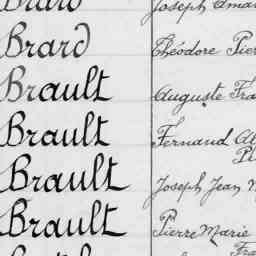 Brard Joseph
Brard Théodore
Brault Auguste
Brault Fernand
Brault Joseph Jean
Brault Pierre Marie